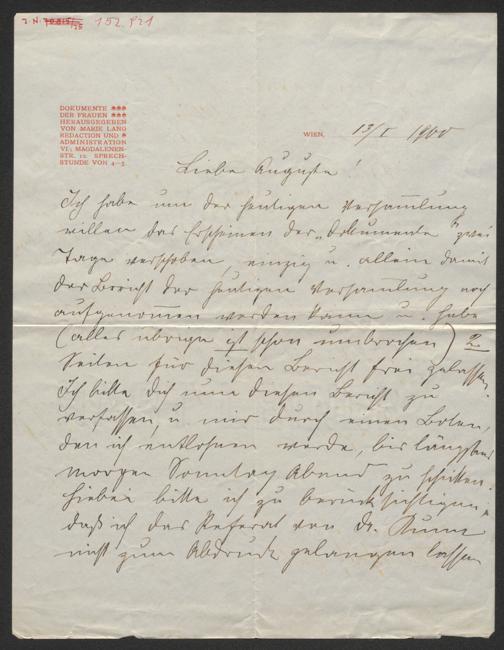 J. N. 152.921
DOKUMENTE ***
DER FRAUEN ***
HERAUSGEGEBEN
VON MARIE LANG
REDACTION UND *
ADMINISTRATION
VI.; MAGDALENEN-
STR. 12. SPRECH-
STUNDE VON 4-5.
WIEN, 13/I 1900
Liebe Auguste!
Ich habe um der heutigen Versammlung
willen das Erscheinen der „Dokumente" zwei
Tage verschoben einzig u. allein damit
der Bericht der heutigen Versamlung noch
aufgenommen werden kann u. habe
(alles übrige ist schon umbrochen) 2
Seiten für diesen Bericht frei gelassen.
Ich bitte dich nun diesen Bericht zu
verfassen, u. mir durch einen Boten,
den ich entlohnen werde, bis längstens
morgen Sonntag Abend zu schicken.
Hiebei bitte ich zu berücksichtigen,
daß ich das Referat von Dr.
nicht zum Abdruck gelangen lassen